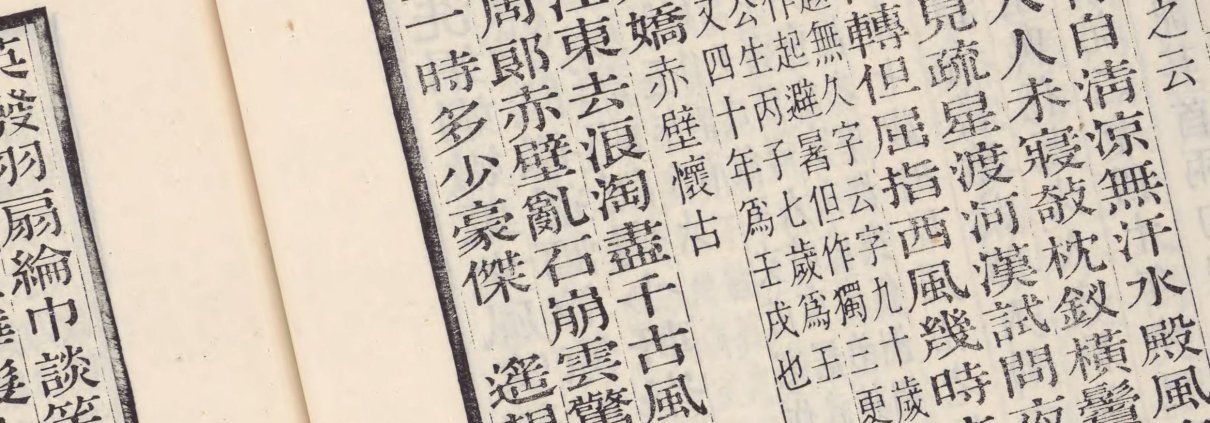 之云
自清涼無汗水殿風
人人未寢敧枕釵橫鬢
見疏星渡河漢試問夜
轉但屈指西風幾時
無久字云字九十歲
作起避暑但作獨三更
公生丙子七歲爲壬
文四十年爲壬戌也
嬌赤壁懷古
江東去浪淘盡千古風
周郎赤壁亂石崩雲驚
一時多少豪傑 遙想
英發羽扇綸巾談笑
髮